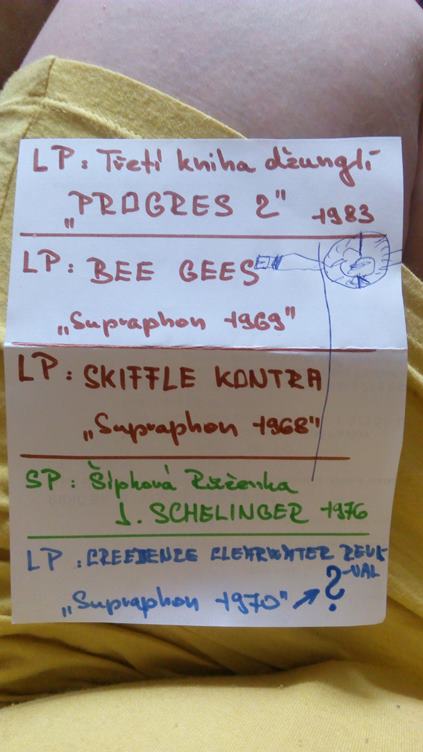 LP: Třetí kniha džunglí
„PROGRES 2" 1983
LP: BEE GEES
„Supraphon 1969"
LP: SKIFFLE KONTRA
„Supraphon 1968"
SP: Šípková Růženka
J. SCHELINGER 1976
LP: CREEDENZE CLEARWATER REVI-
VAL
„Supraphon 1970" → ?